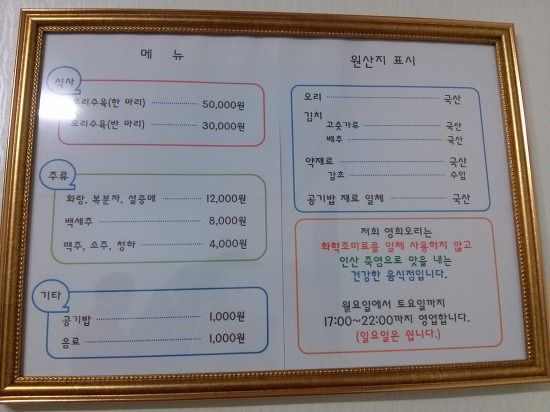 메 뉴
식사
오리수육(한 마리) 50,000원
오리수육(반 마리) 30,000원
주류
화랑, 복분자, 설중매 12,000원
백세주 8,000원
맥주, 소주, 청하 4,000원
기타
공기밥 1,000원
음료 1,000원
원산지 표시
오리 국산
김치
고춧가루 국산
배추 국산
약재료 국산
감초 수입
공기밥 재료 일체 국산
저희 영희오리는
화학조미료를 일체 사용하지 않고
인산 죽염으로 맛을 내는
건강한 음식점입니다.
월요일에서 토요일까지
17:00~22:00까지 영업합니다.
(일요일은 쉽니다.)